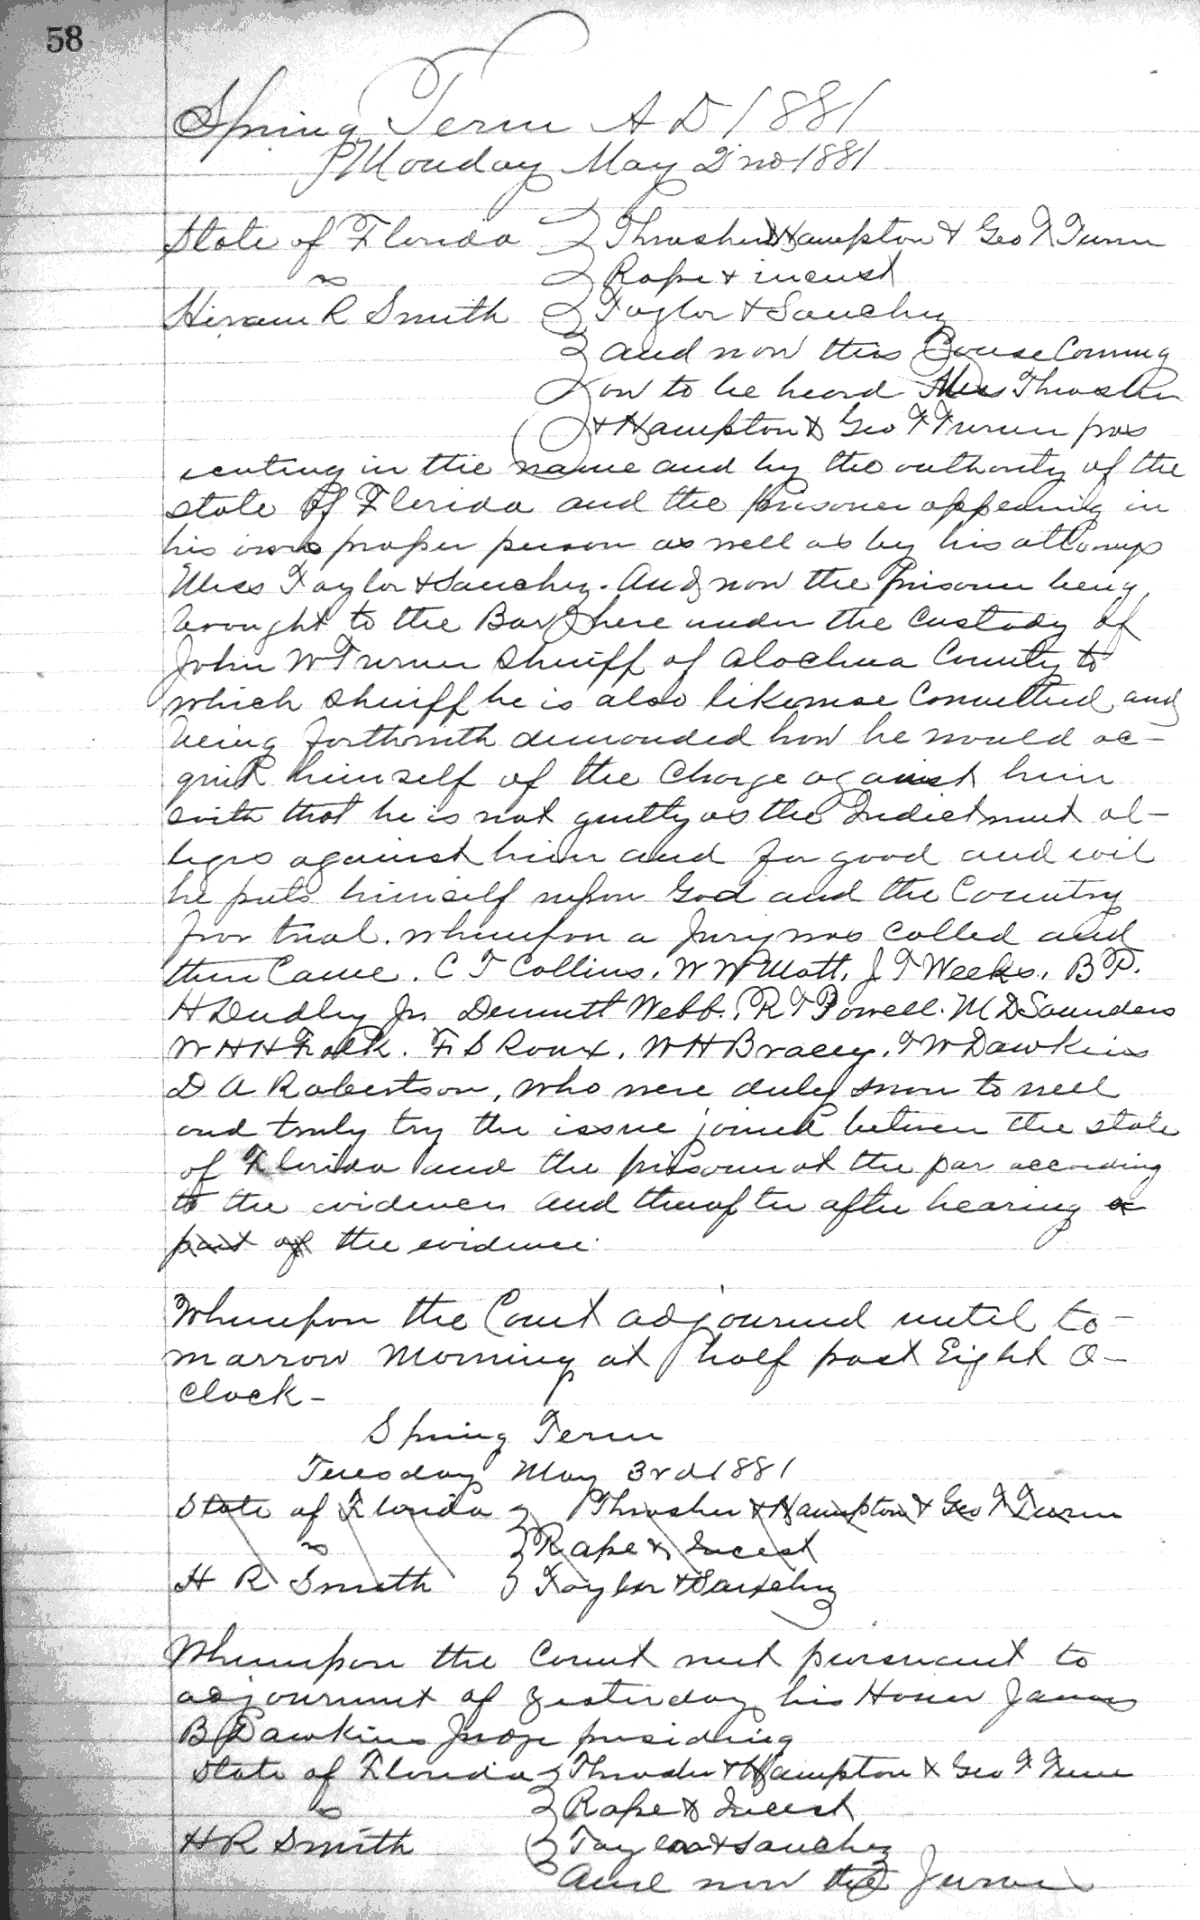 58
Spring Term A D 1881
Monday May 2nd 1881
State of Florida } Thrasher & Hampton & Geo F Turner
vs } Rape & incest
Hiram R Smith } Taylor & Sanchez
} and now this Cause Coming
} on to be heard Mess Thrasher
} & Hampton & Geo F Turner pros
ecuting in the name and by the authority of the
state of Florida and the prisoner appearing in
his own proper person as well as by his attorneys
Mess Taylor & Sanchez. And now the prisoner being
brought to the Bar here under the custody of
John W Turner Sheriff of Alachua County to
which sheriff he is also likewise Committed and
being forthwith demanded how he would ac-
quit himself of the Charge against him
saith that he is not guilty as the Indictment al-
leges against him and for good and evil
he puts himself upon God and the Country
for trial. Whereupon a Jury was called and
then Came. C T Collins. W W Mott. J T Weeks. B P.
H Dudley Jr. Dennett Webb. R T Powell. M D Saunders
W H H Falk. F S Roux. W H Bracey. T W Dawkins
D A Robertson, who were duly sworn to well
and truly try the issue joined between the state
of Florida and the prisoner at the par according
to the evidence and thereafter after hearing a
part of the evidence.
Whereupon the Court adjourned until to-
marrow morning at half past Eight O-
clock-
Spring Term
Tuesday May 3rd 1881
State of Florida } Thrasher & Hampton & Geo F Turner
vs } Rape & Incest
H R Smith } Taylor & Sanchez
Whereupon the Court met pursuant to
adjournment of yesterday his Honor James
B Dawkins Judge presiding
State of Florida } Thrasher & Hampton & Geo F Turner
vs } Rape & Incest
H R Smith } Taylor & Sanchez
And now the Jurors